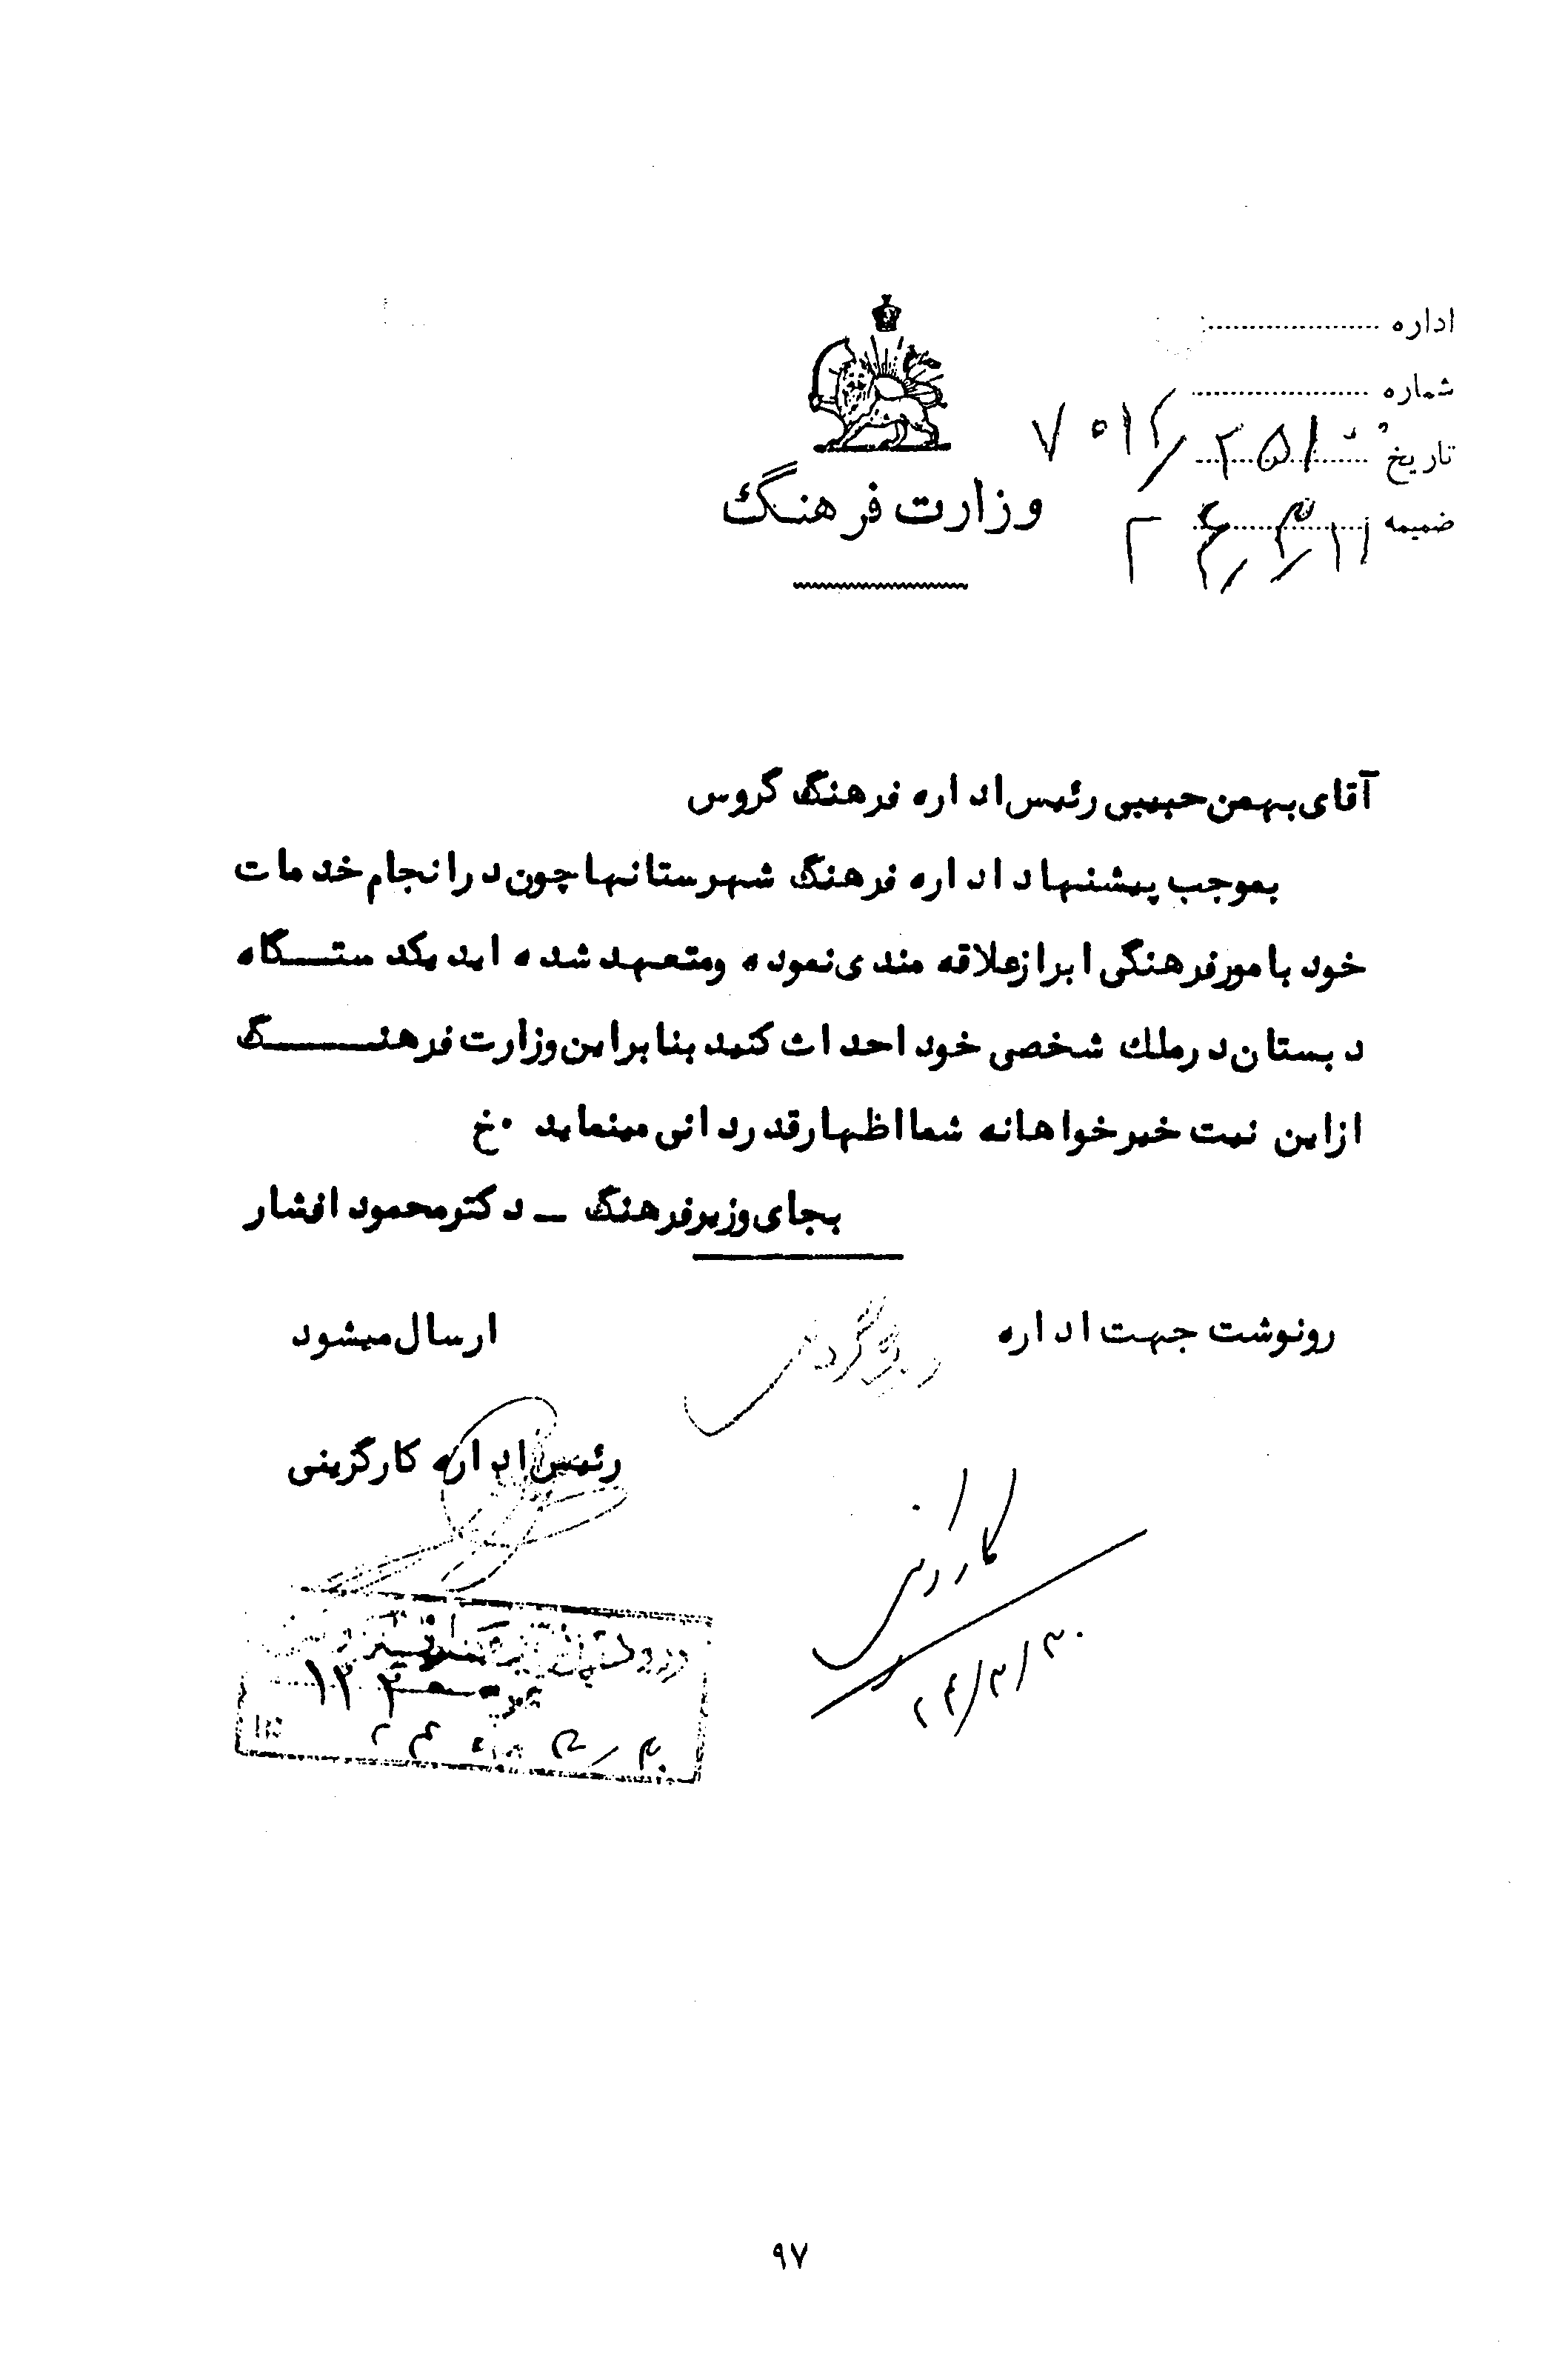 اداره
شماره
تاریخ
ضمیمه
وزارت فرهنگ
آقای بهمن حبیبی رئیس اداره فرهنگ گروس
بموجب پیشنهاد اداره فرهنگ شهرستانها چون در انجام خدمات
خود بامور فرهنگی ابراز علاقه مندی نموده و متعهد شده اید یکدستگاه
دبستان در ملك شخصی خود احداث کنید بنابراین وزارت فرهنگ
از این نیت خیرخواهانه شما اظهار قدردانی مینماید ۰خ
بجای وزیر فرهنگ ــ دکتر محمود افشار
رونوشت جهت اداره
ارسال میشود
رئیس اداره کارگزینی
۲۴/۳/۳۰
۹۷